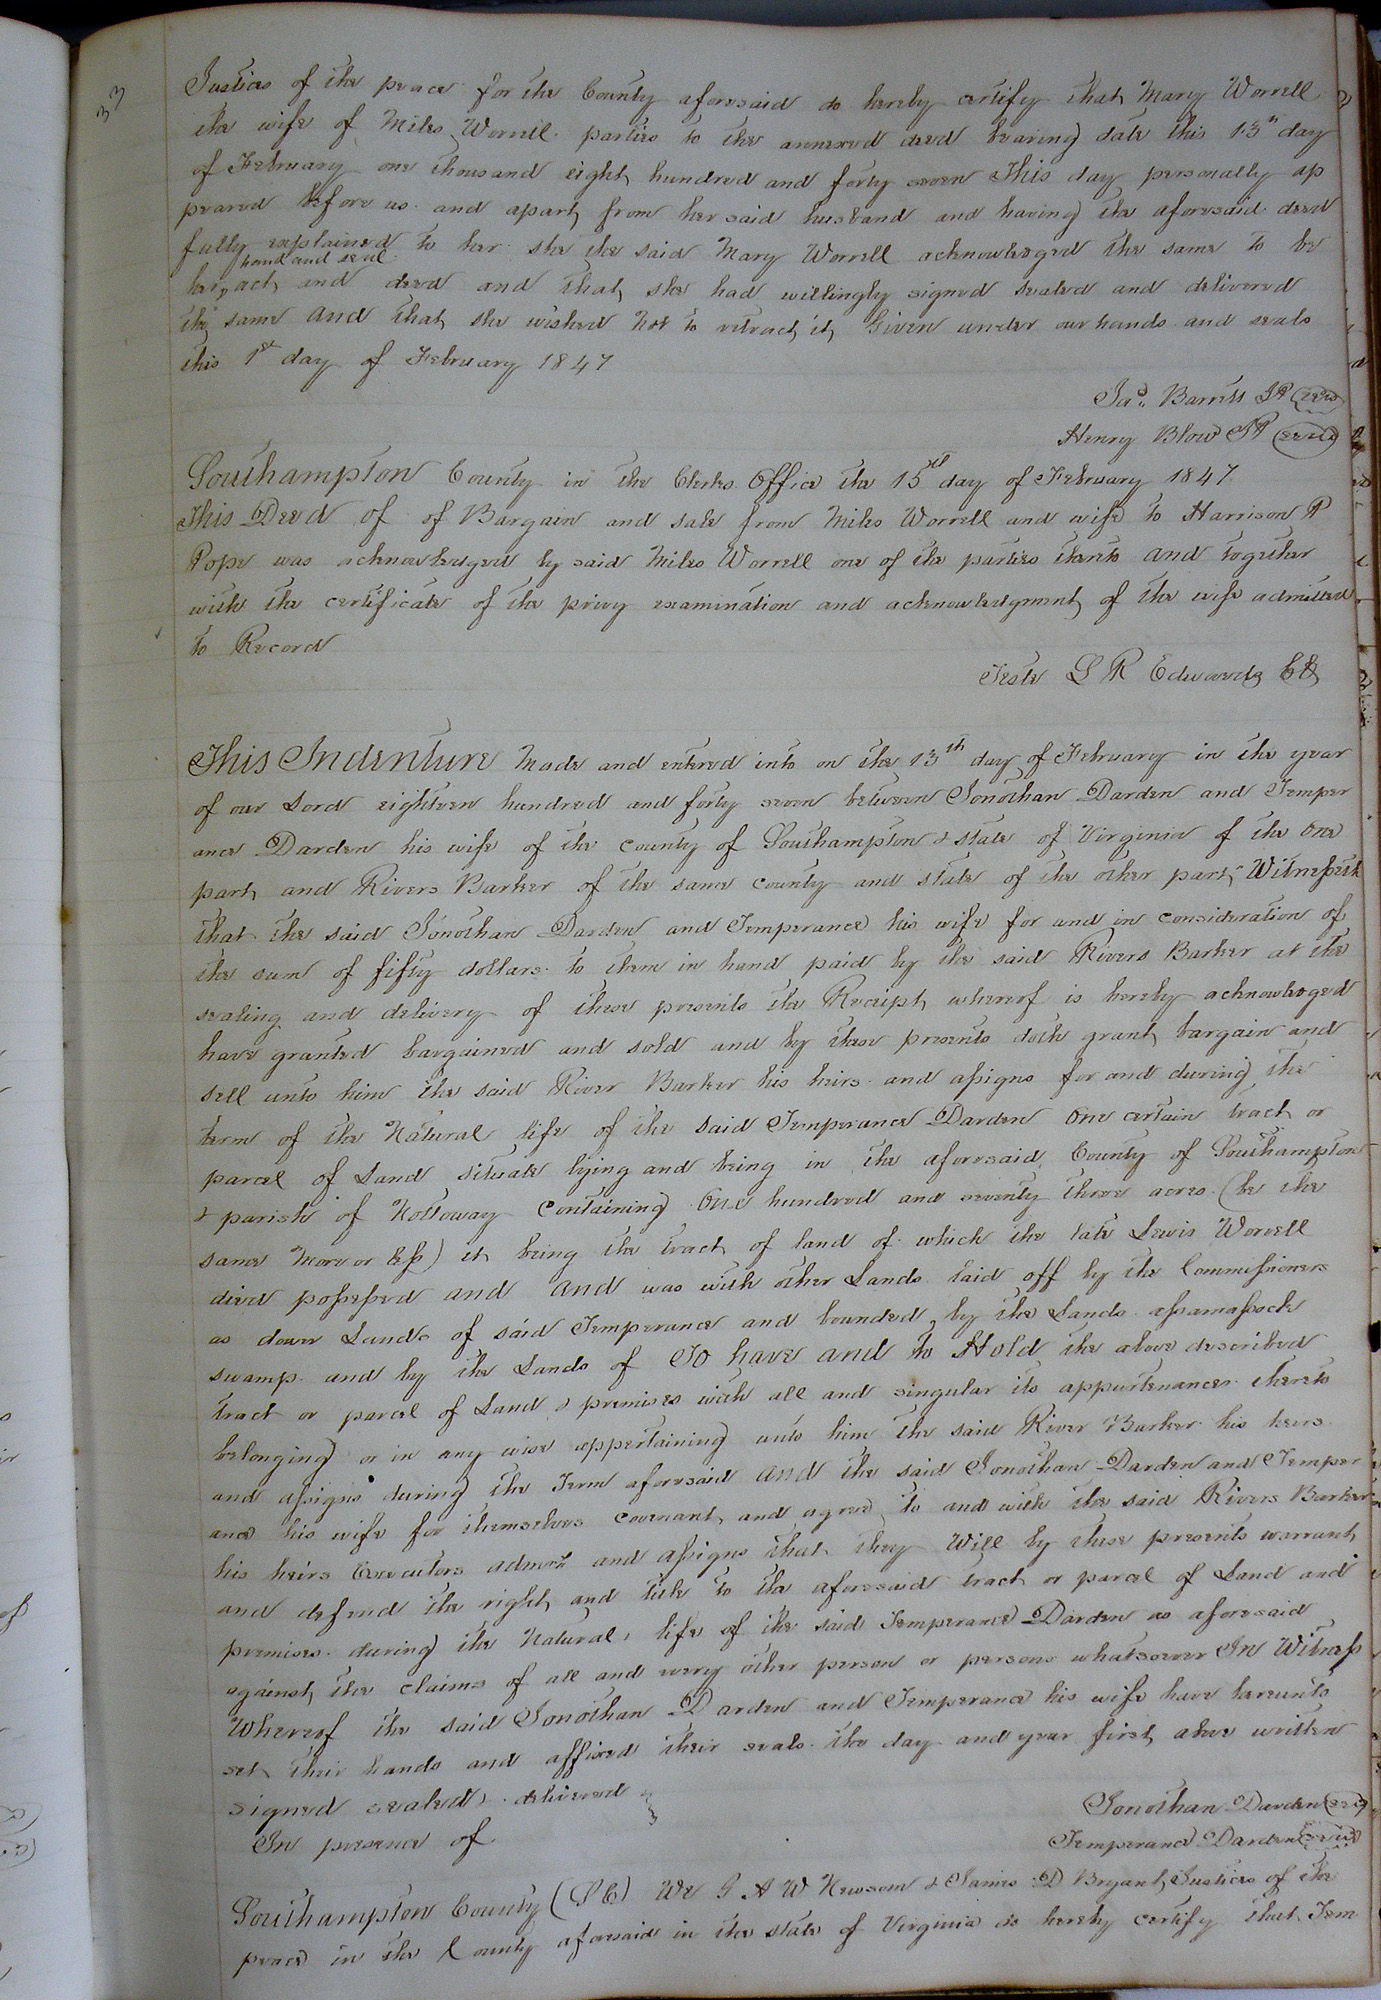 33
Justices of the peace for the County aforesaid do hereby certify that Mary Worrell
the wife of Miles Worrell parties to the annexed deed bearing date this 13th day
of February one thousand eight hundred and forty seven This day personally ap
peared before us and apart from her said husband and having the aforesaid deed
fully explained to her she the said Mary Worrell acknowledged the same to be
hand and seal
her act and deed and that she had willingly signed sealed and delivered
the same and that she wished not to retract it Given under our hands and seals
this 1st day of February 1847
Jas. Barrett JP (seal)
Henry Blow JP (seal)
Southampton County in the Clerks Office the 15th day of February 1847
This Deed of of Bargain and sale from Miles Worrell and wife to Harrison P
Pope was acknowledged by said Miles Worrell one of the parties thereto and together
with the certificate of the privy examination and acknowledgment of the wife admitted
to Record
Teste L R Edwards CC
This Indenture Made and entered into on the 13th day of February in the year
of our Lord eighteen hundred and forty seven between Jonothan Darden and Temper
ance Darden his wife of the county of Southampton & state of Virginia of the one
part and Rivers Barker of the same county and state of the other part Witnesseth
that the said Jonothan Darden and Temperance his wife for and in consideration of
the sum of fifty dollars to them in hand paid by the said Rivers Barker at the
sealing and delivery of these presents the Receipt whereof is hereby acknowledged
have granted bargained and sold and by these presents doth grant bargain and
sell unto him the said River Barker his heirs and assigns for and during the
term of the Natural life of the said Temperance Darden one certain tract or
parcel of Land situate lying and being in the aforesaid County of Southampton
& parish of Nottoway Containing One hundred and seventy three acres (be the
same More or less) it being the tract of land of which the late Lewis Worrell
died possessed and and was with other Lands laid off by the Commissioners
as dower Lands of said Temperance and bounded by the Lands assamassock
swamp and by the Lands of To have and to Hold the above described
tract or parcel of Land & premises with all and singular its appurtenances thereto
belonging or in any wise appertaining unto him the said River Barker his heirs
and assigns during the Term aforesaid and the said Jonothan Darden and Temper
ance his wife for themselves covenant and agree to and with the said Rivers Barker
his heirs Executors admors and assigns that they Will by these presents warrant
and defend the right and title to the aforesaid tract or parcel of Land and
premises during the Natural life of the said Temperance Darden as aforesaid
against the claims of all and every other person or persons whatsoever In Witness
Whereof the said Jonothan Darden and Temperance his wife have hereunto
set their hands and affixed their seals the day and year first above written
signed sealed & delivered
Jonothan Darden (seal)
In presence of
Temperance Darden (seal)
Southampton County (SC) We A W Newsom & James D Bryant Justices of the
peace in the County aforesaid in the state of Virginia do hereby certify that Tem